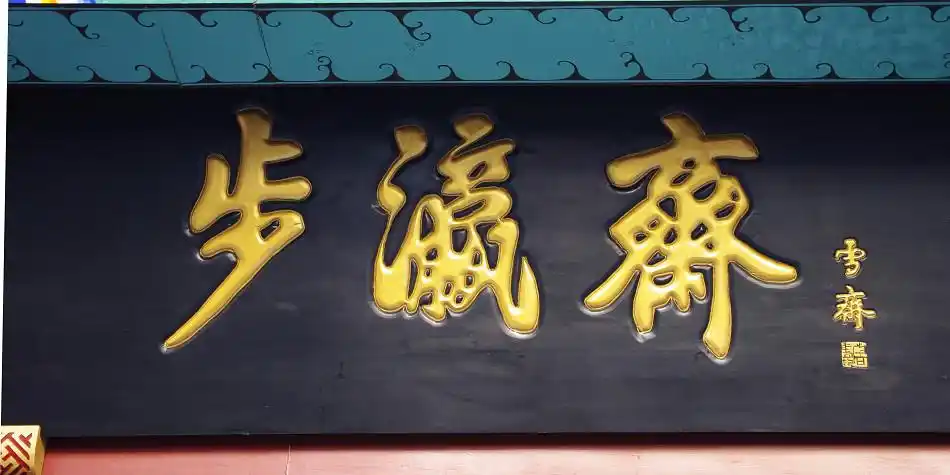 步瀛齋
雪齋